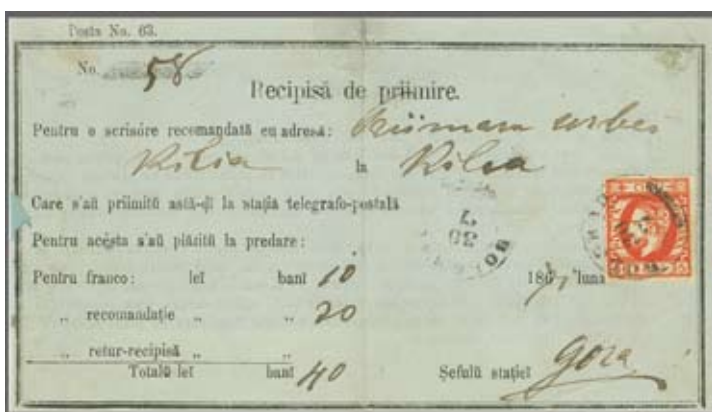 Posta No. 63.
No. 58
Recipisă de priimire.
Pentru o scrisóre recomandată cu adresă:
Kilia la Kilia
Care s'aŭ priimitŭ astă-ḑi la stația telegrafo-postală
Pentru acésta s'aŭ plătitŭ la predare:
Pentru franco: leĭ banĭ 10
„ recomandație „ „ 20
„ retur-recipisă „ „
Totalŭ leĭ banĭ 40
187 luna
Șefulŭ stațieĭ
30
7